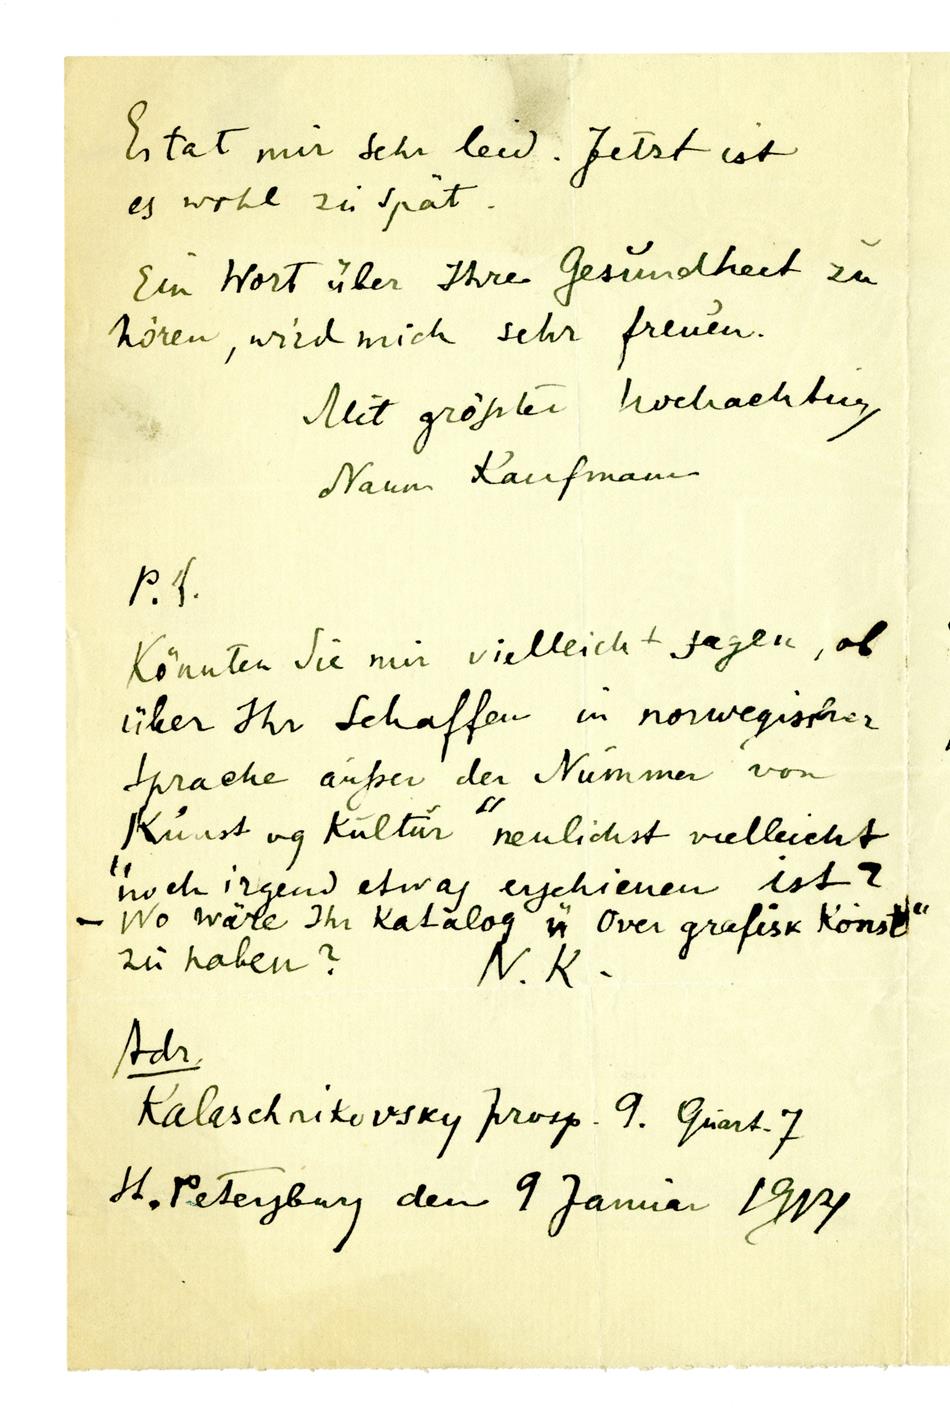 Es tat mir sehr leid. Jetzt ist
es wohl zu spät.
Ein Wort über Ihre Gesundheit zu
hören, wird mich sehr freuen.
Mit größter Hochachtung
Naum Kaufmann
P.S.
Könnten Sie mir vielleicht sagen, ob
über Ihr Schaffen in norwegischer
Sprache außer der Nummer von
"Kunst og Kultur" neulichst vielleicht
noch irgend etwas erschienen ist?
– Wo wäre Ihr Katalog "Over grafisk Konst"
zu haben? N. K.
Adr.
Kalaschnikovsky prosp. 9. Quart. 7
St. Petersburg den 9 Januar 1914